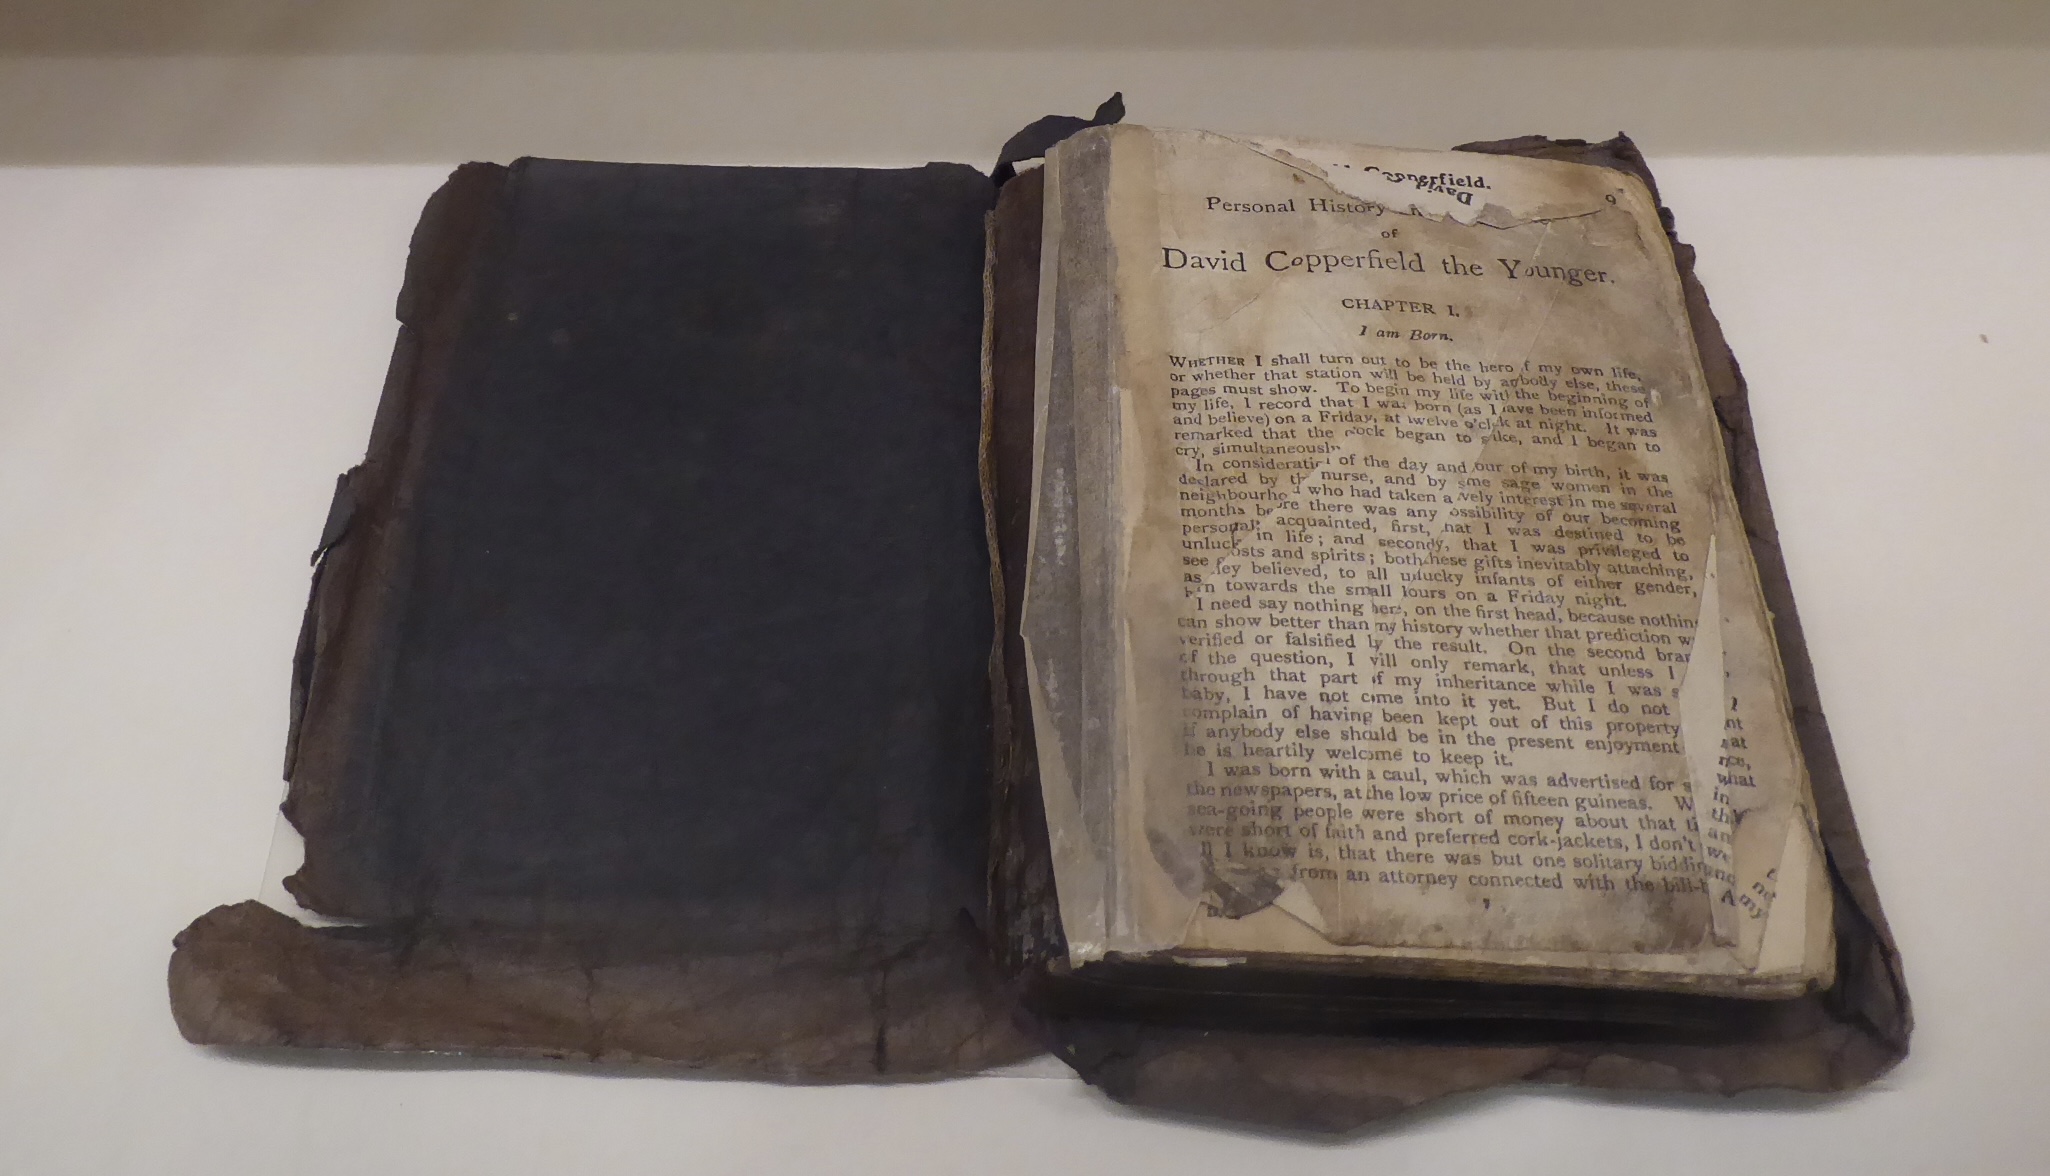 Copperfield.
David
9
Personal History
of
David Copperfield the Younger.
CHAPTER I.
I am Born.
WHETHER I shall turn out to be the hero f my own life,
or whether that station will be held by anybody else, these
pages must show. To begin my life with the beginning of
my life, I record that I was born (as I have been informed
and believe) on a Friday, at twelve o'clock at night. It was
remarked that the clock began to strike, and I began to
cry, simultaneously
In consideration of the day and our of my birth, it was
declared by the nurse, and by some sage women in the
neighbourho d who had taken a lively interest in me several
months before there was any ossibility of our becoming
personally acquainted, first, hat I was destined to be
unluck in life; and secondly, that I was privileged to
see osts and spirits; both these gifts inevitably attaching,
as they believed, to all unlucky infants of either gender,
born towards the small hours on a Friday night.
I need say nothing here, on the first head, because nothin
can show better than my history whether that prediction w
verified or falsified by the result. On the second bran
of the question, I will only remark, that unless I
through that part of my inheritance while I was s
baby, I have not come into it yet. But I do not
complain of having been kept out of this property
if anybody else should be in the present enjoyment
he is heartily welcome to keep it.
I was born with a caul, which was advertised for s
the newspapers, at the low price of fifteen guineas. W
sea-going people were short of money about that ti
were short of faith and preferred cork-jackets, I don't
ll I know is, that there was but one solitary bidding
from an attorney connected with the bill-b
nt
at
nce,
what
in
th
an
we
and
A my
no